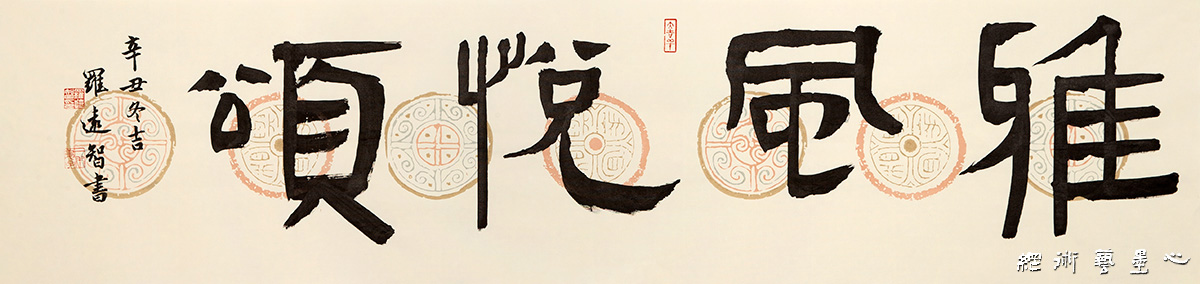 雅風悅頌
辛丑冬吉
羅遠智書
心墨藝術經